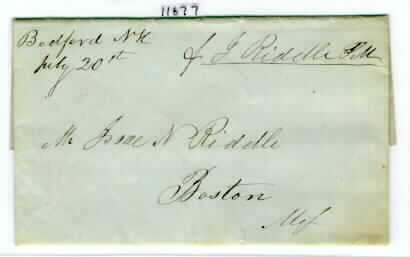 11877
Bedford NH
July 20st
f J Riddle PM
Mr Isaac N Riddle
Boston
Mss